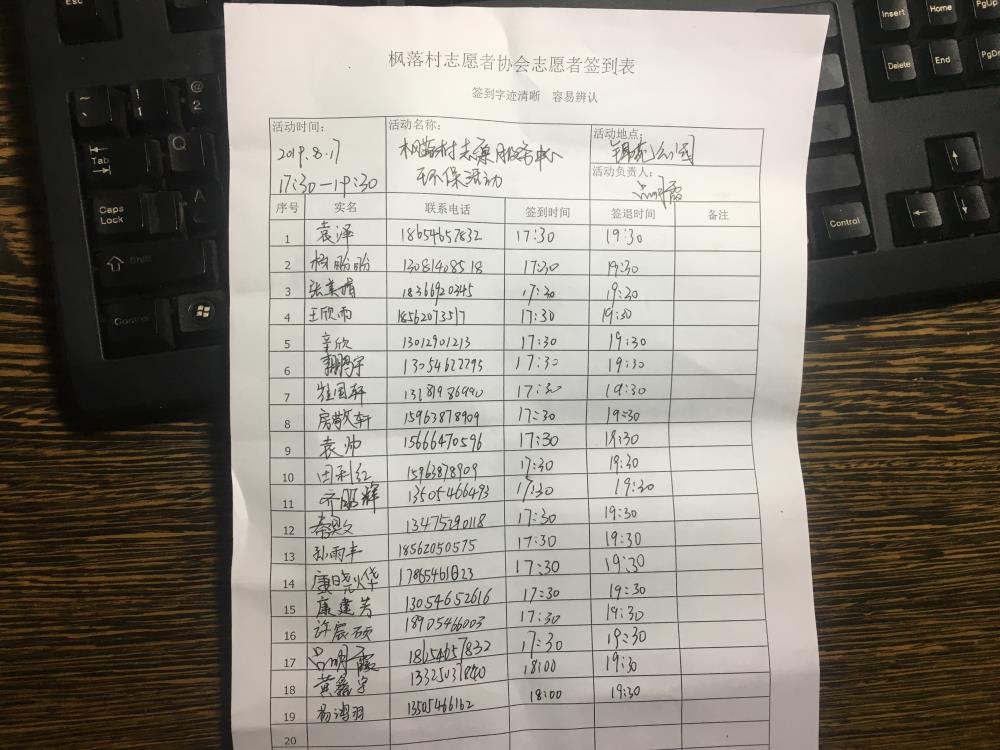 枫落村志愿者协会志愿者签到表
签到字迹清晰 容易辨认
活动时间: 活动名称: 活动地点:
2019.8.17 枫落村志愿服务中心
17:30—19:30 环保活动 活动负责人:
吕明霞
序号 实名 联系电话 签到时间 签退时间 备注
1 袁泽 18654657832 17:30 19:30
2 杨盼盼 13081408518 17:30 19:30
3 张美娟 18366920345 17:30 19:30
4 王欣雨 18562073517 17:30 19:30
5 辛欣 13012901213 17:30 19:30
6 13054622795 17:30 19:30
7 崔国轩 13181986990 17:30 19:30
8 房敬轩 15963878909 17:30 19:30
9 袁帅 15666470596 17:30 19:30
10 田利红 15963878909 17:30 19:30
11 13505466493 17:30 19:30
12 13475290118 17:30 19:30
13 孙雨丰 18562050575 17:30 19:30
14 康晓烨 17:30 19:30
15 康建芳 13054652616 17:30 19:30
16 许宸硕 18905466003 17:30 19:30
17 吕明霞 18654657832 17:30 19:30
18 黄鑫宇 13325031840 18:00 19:30
19 杨鸿羽 13505466162 18:00 19:30
20
Esc
Tab
Q
Caps Lock
A
Shift
Z
Control
Insert
Home
PgUp
Delete
End
PgDn
Control